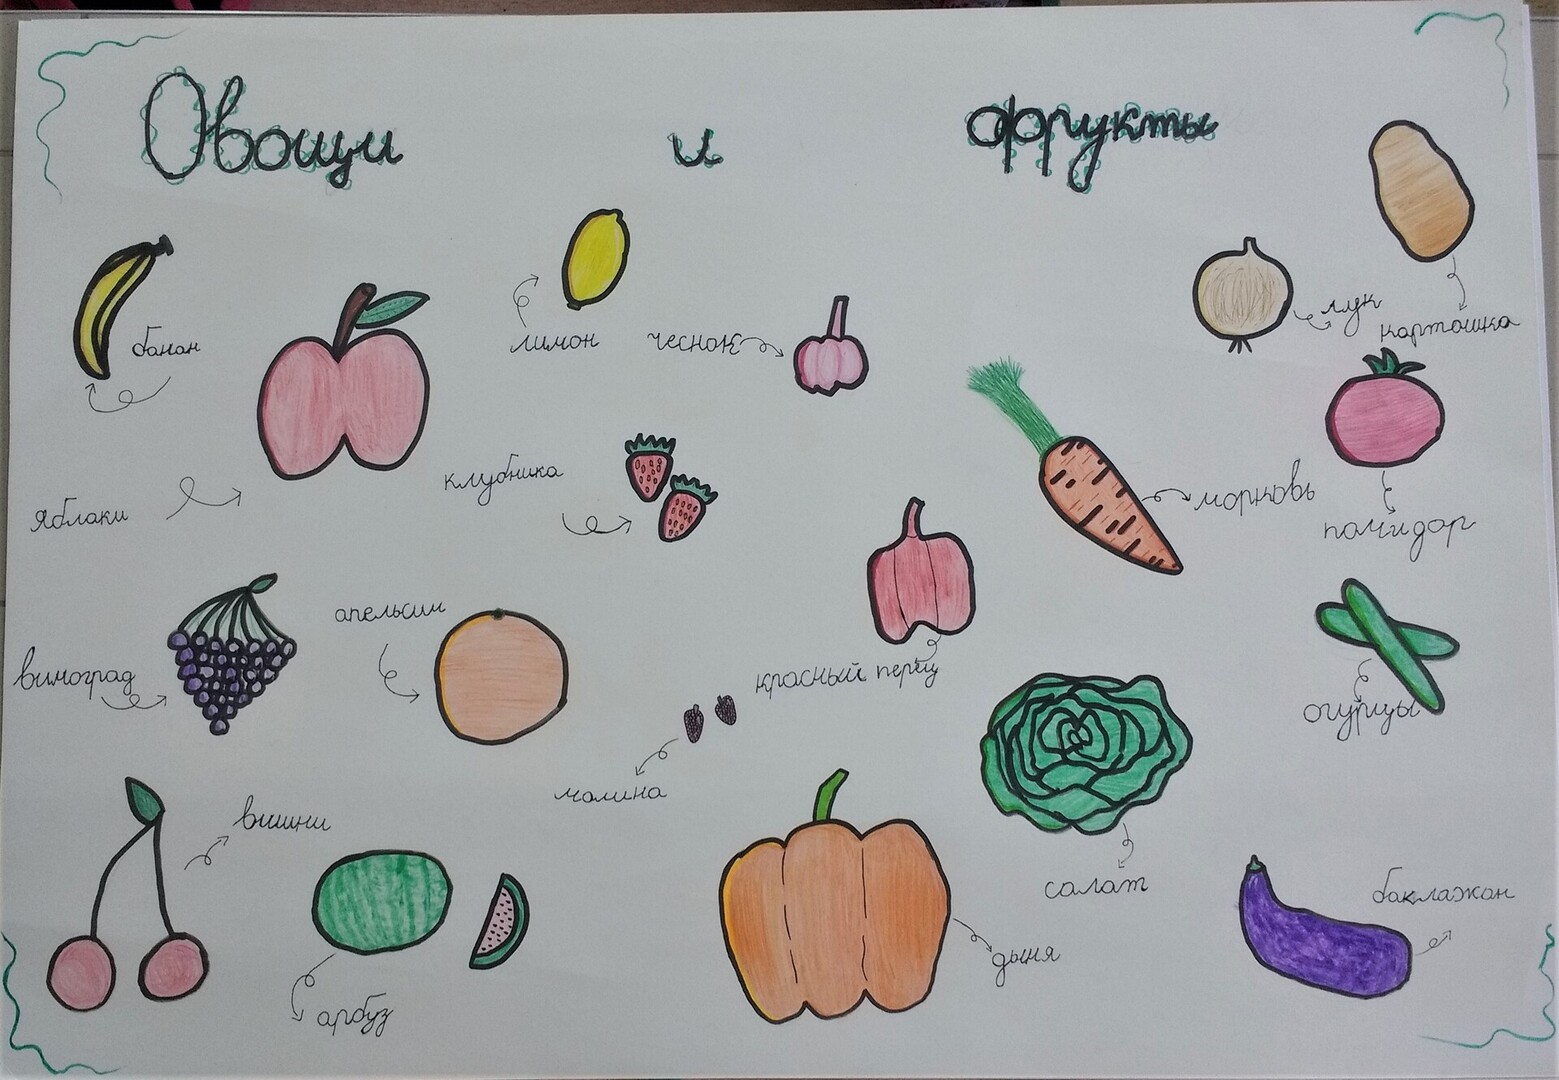 Овощи и фрукты
банан
лимон
чеснок
лук
картошка
яблоки
клубника
морковь
помидор
виноград
апельсин
красный перец
огурцы
малина
вишни
салат
баклажан
арбуз
дыня